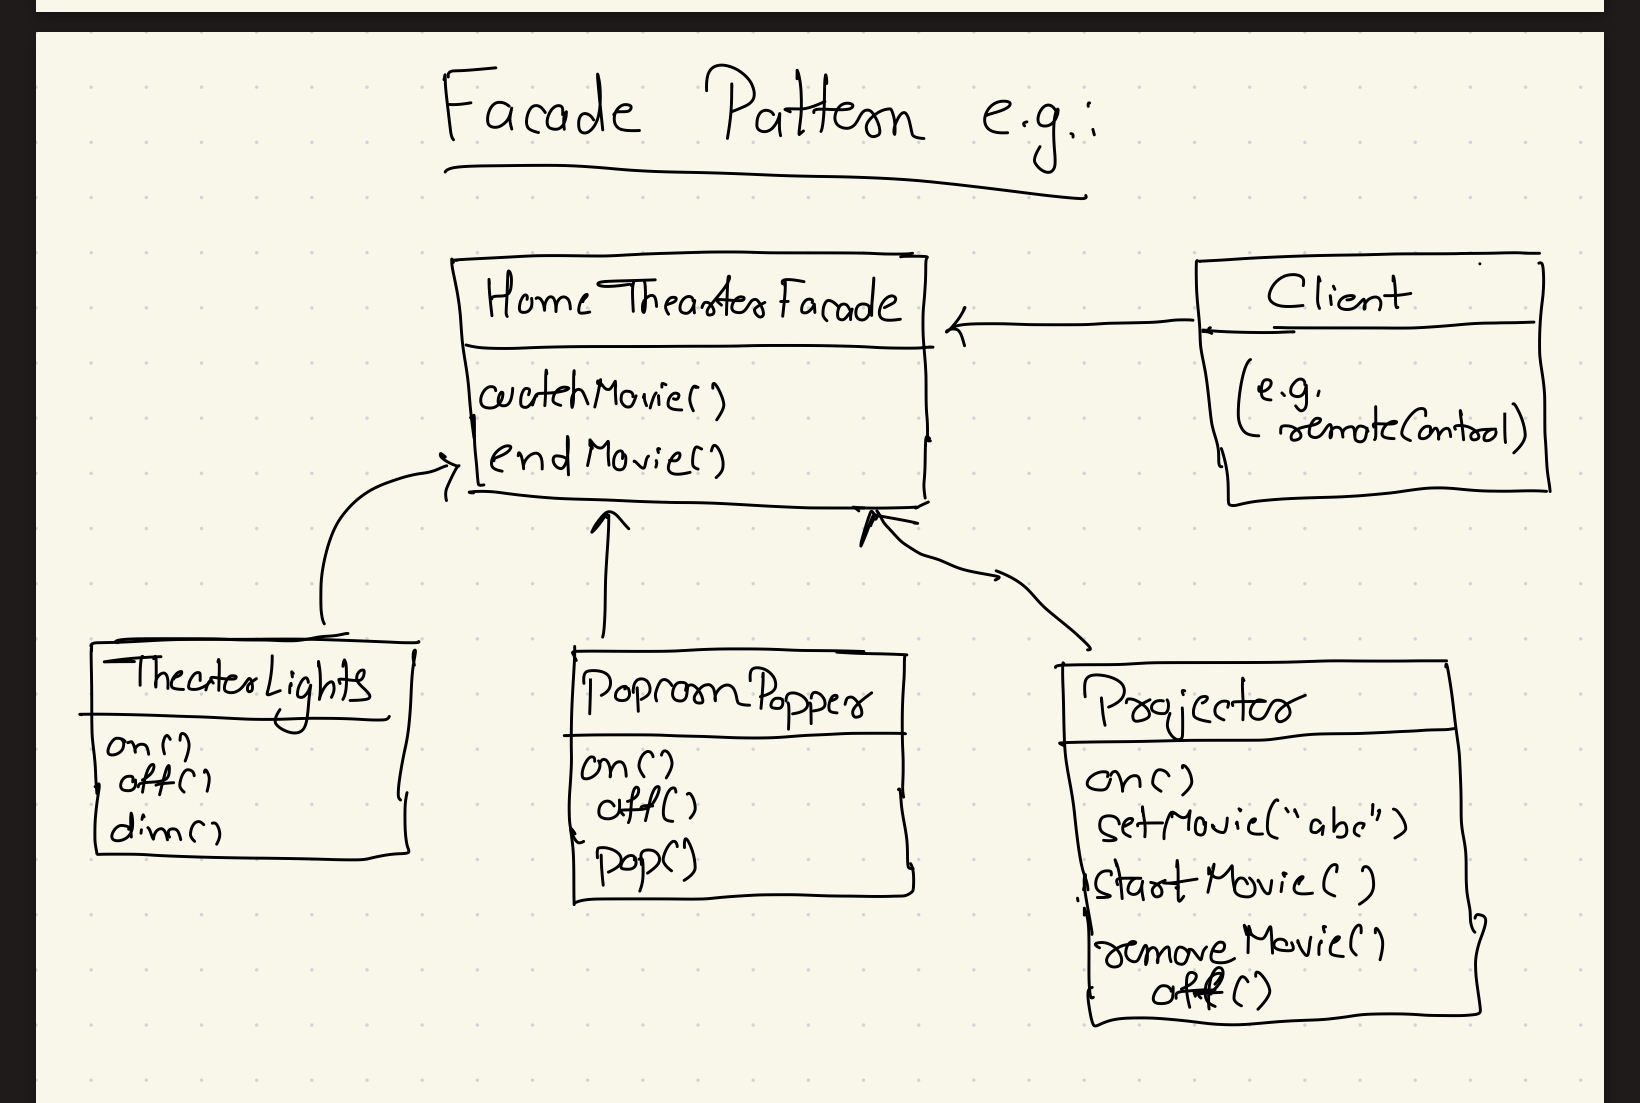 Facade Pattern e.g.:
HomeTheaterFacade
watchMovie()
endMovie()
Client
(e.g.
remoteControl)
TheaterLights
on()
off()
dim()
PopcornPopper
on()
off()
pop()
Projector
on()
setMovie("abc")
startMovie()
removeMovie()
off()